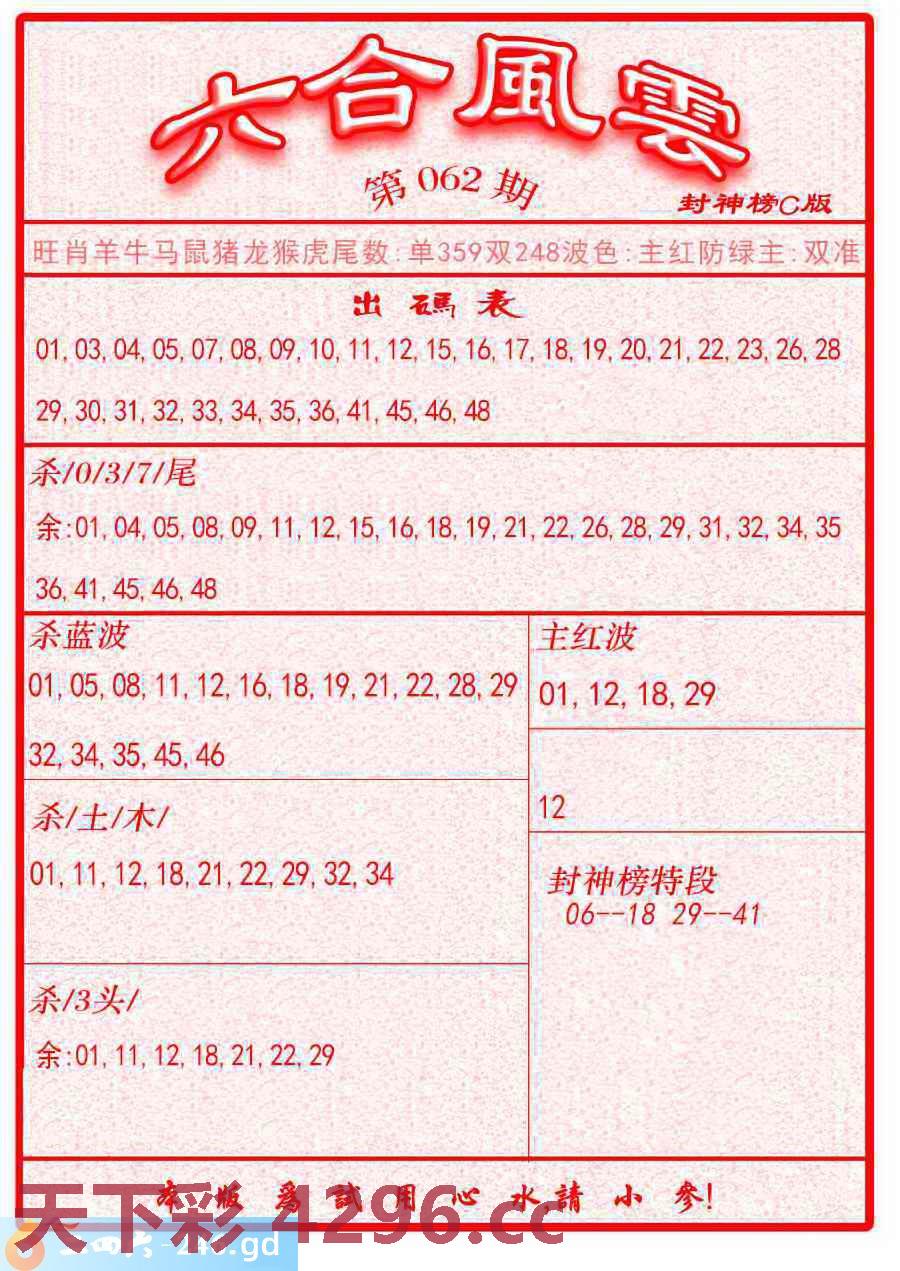 六合風雲
第 062 期
封神榜C版
旺肖羊牛马鼠猪龙猴虎尾数:单359双248波色:主红防绿主:双准
出碼表
01,03,04,05,07,08,09,10,11,12,15,16,17,18,19,20,21,22,23,26,28
29,30,31,32,33,34,35,36,41,45,46,48
杀/0/3/7/尾
余:01,04,05,08,09,11,12,15,16,18,19,21,22,26,28,29,31,32,34,35
36,41,45,46,48
杀蓝波
01,05,08,11,12,16,18,19,21,22,28,29
32,34,35,45,46
主红波
01,12,18,29
12
杀/土/木/
01,11,12,18,21,22,29,32,34
封神榜特段
06--18 29--41
杀/3头/
余:01,11,12,18,21,22,29
本版爲試用心水,請小參!
天下彩 4296.cc
二四六-246.gd